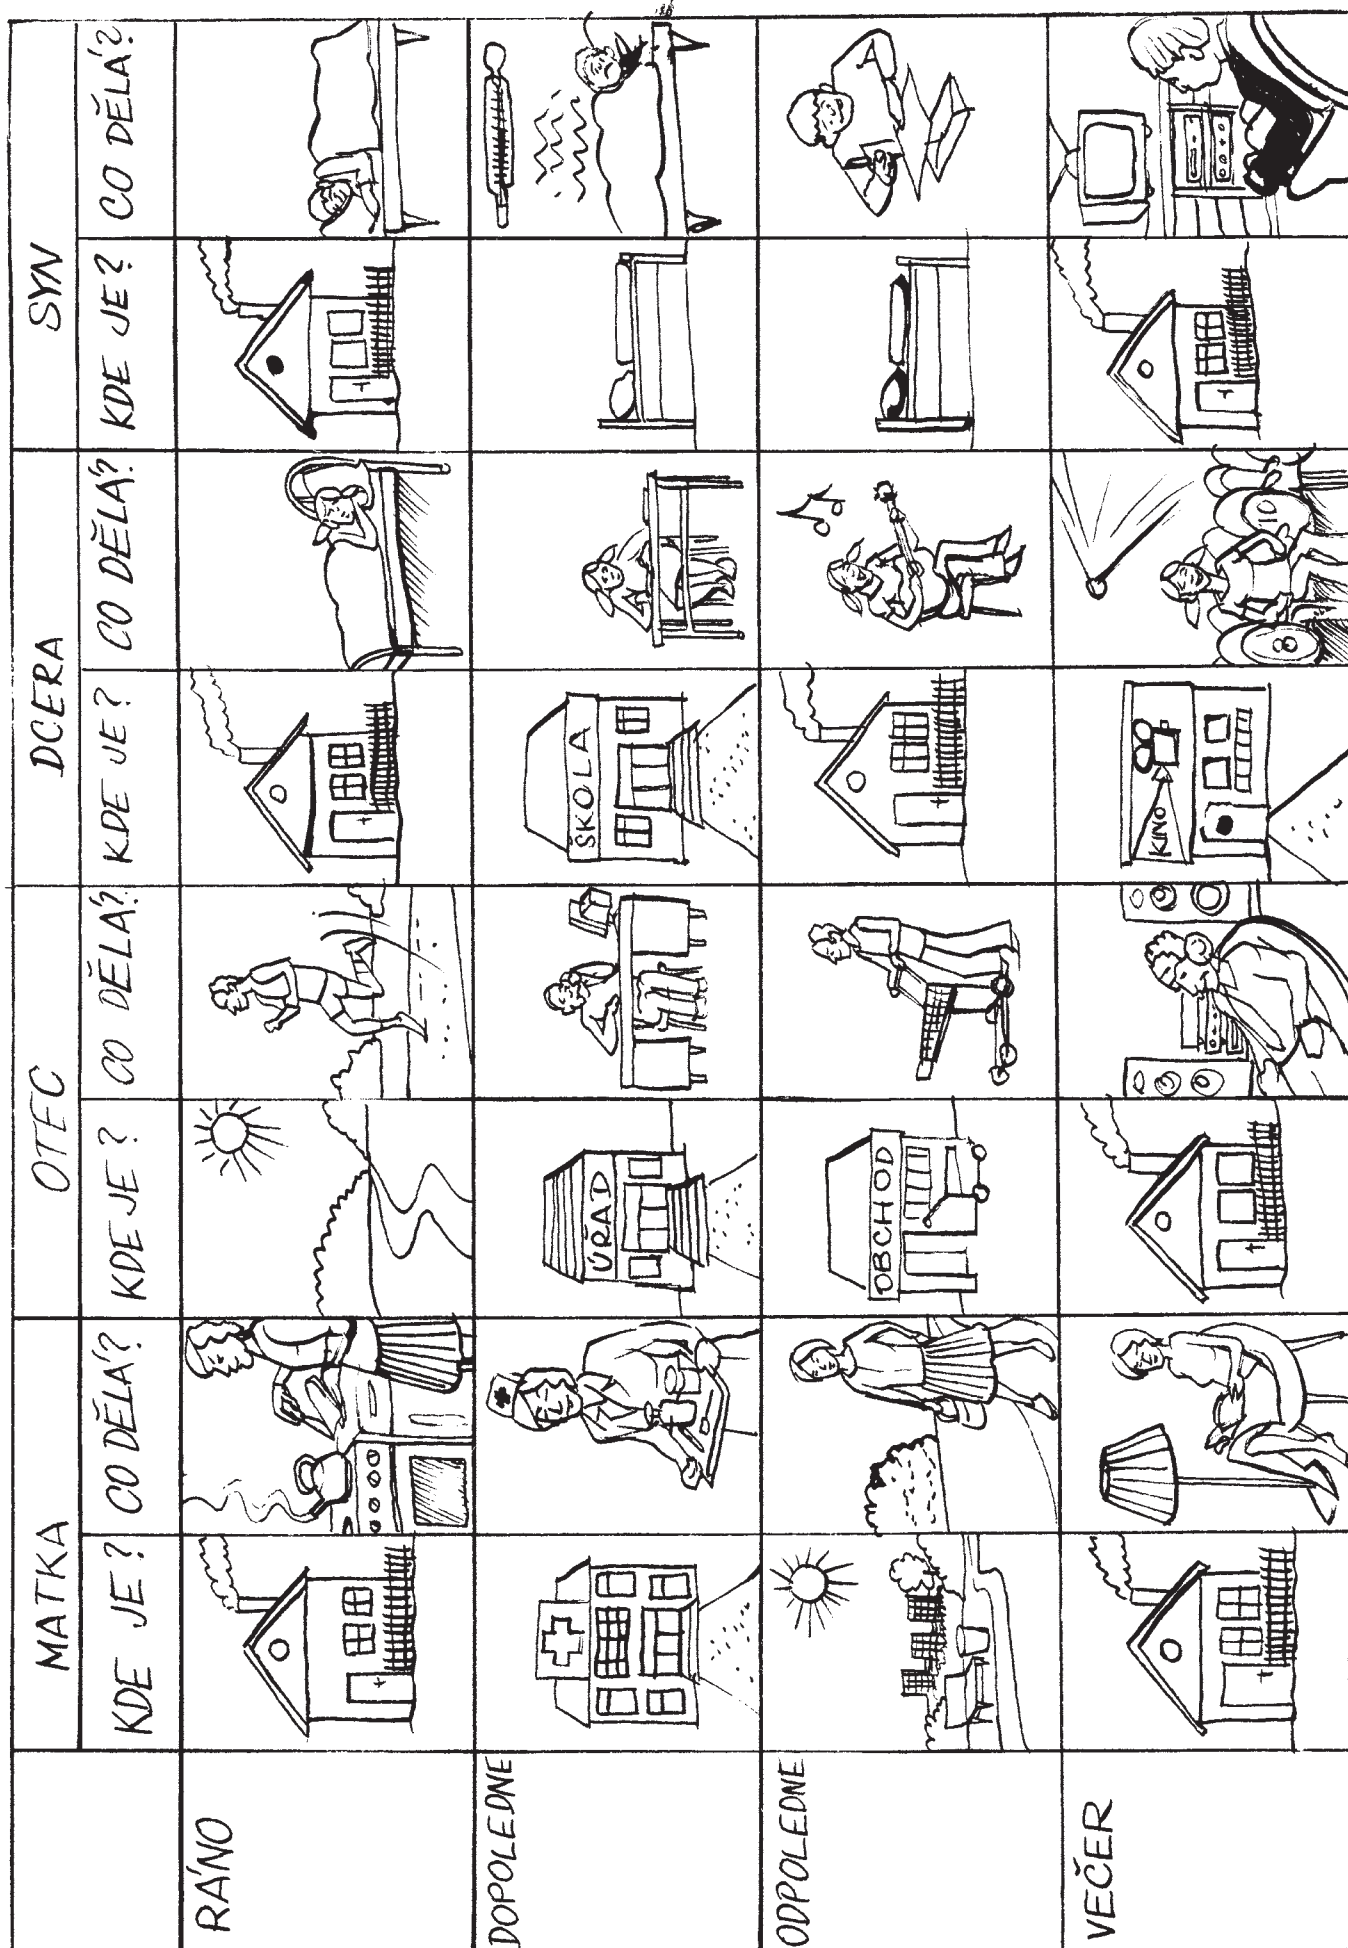 MATKA OTEC DCERA SYN
KDE JE? CO DĚLÁ? KDE JE? CO DĚLÁ? KDE JE? CO DĚLÁ? KDE JE? CO DĚLÁ?
RÁNO
DOPOLEDNE
ÚŘAD
ŠKOLA
ODPOLEDNE
OBCHOD
VEČER
8
KINO
10